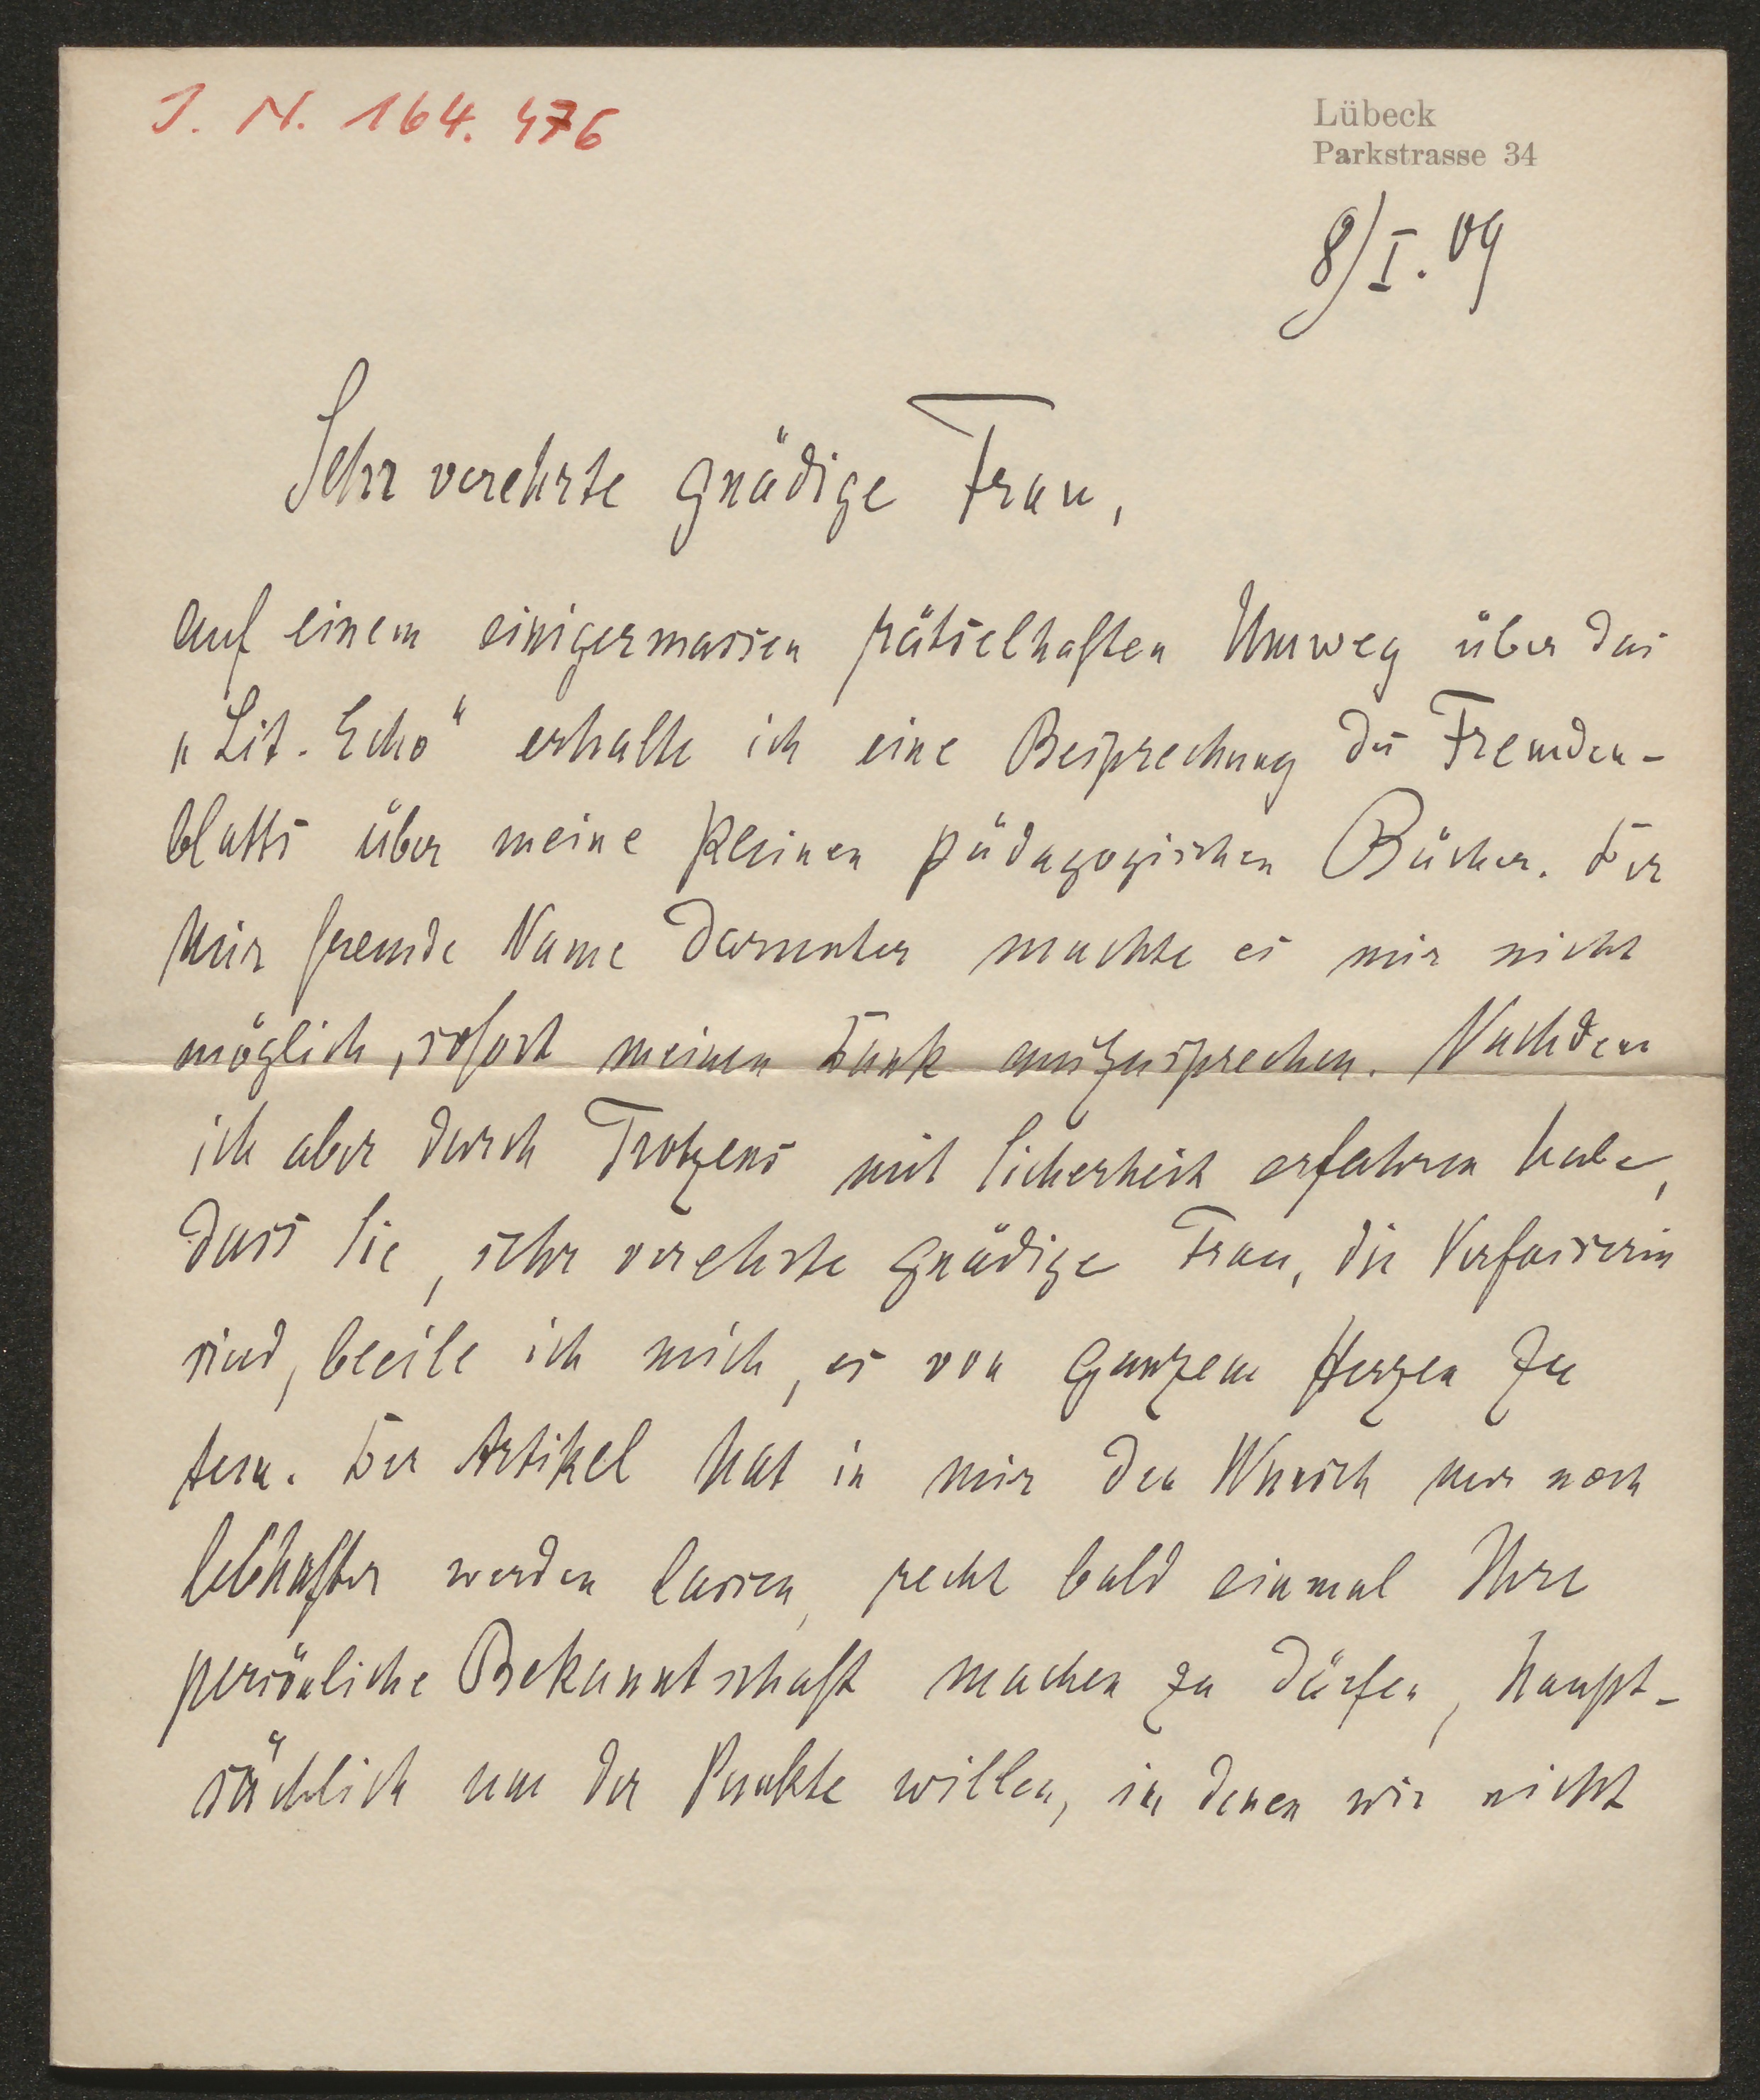 J. N. 164.476
Lübeck
Parkstrasse 34
8/I. 09
Sehr verehrte gnädige Frau,
auf einem einigermassen rätselhaften Umweg über das
„Lit. Echo“ erhalte ich eine Besprechung des Fremden-
blatts über meine kleinen pädagogischen Bücher. Der
mir fremde Name darunter machte es mir nicht
möglich, sofort meinen Dank auszusprechen. Nachdem
ich aber durch mit Sicherheit erfahren habe,
dass Sie, sehr verehrte gnädige Frau, die Verfasserin
sind, beeile ich mich, es von ganzem Herzen zu
tun. Der Artikel hat in mir den Wunsch nur noch
lebhafter werden lassen, recht bald einmal Ihre
persönliche Bekanntschaft machen zu dürfen, haupt-
sächlich um der Punkte willen, in denen wir nicht